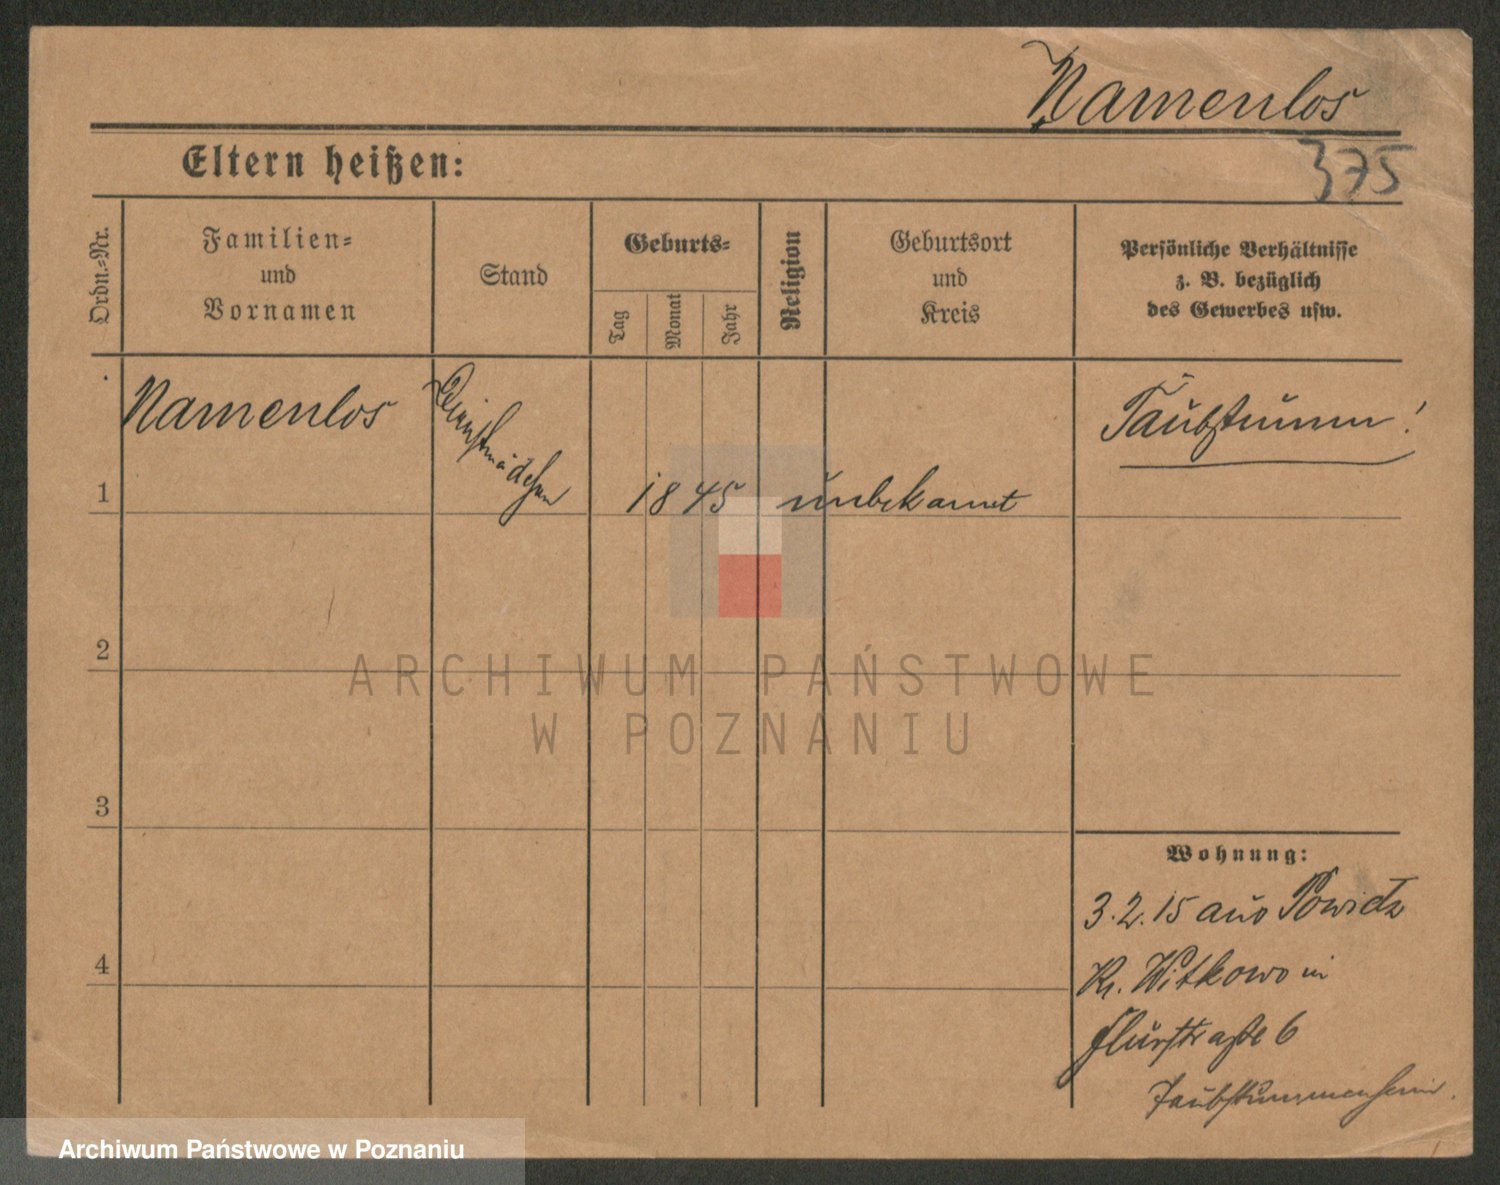 Namenlos
375
Eltern heißen:
Ordn.-Nr.
Familien-
und
Vornamen
Stand
Geburts-
Tag
Monat
Jahr
Religion
Geburtsort
und
Kreis
Persönliche Verhältnisse
z. B. bezüglich
des Gewerbes usw.
1
Namenlos
Dienstmädchen
1845
unbekannt
Taubstumm!
2
3
4
Wohnung:
3.2.15 aus Powidz
Kr. Witkowo in
Flurstraße 6
Taubstummenheim.
ARCHIWUM PAŃSTWOWE
W POZNANIU
Archiwum Państwowe w Poznaniu